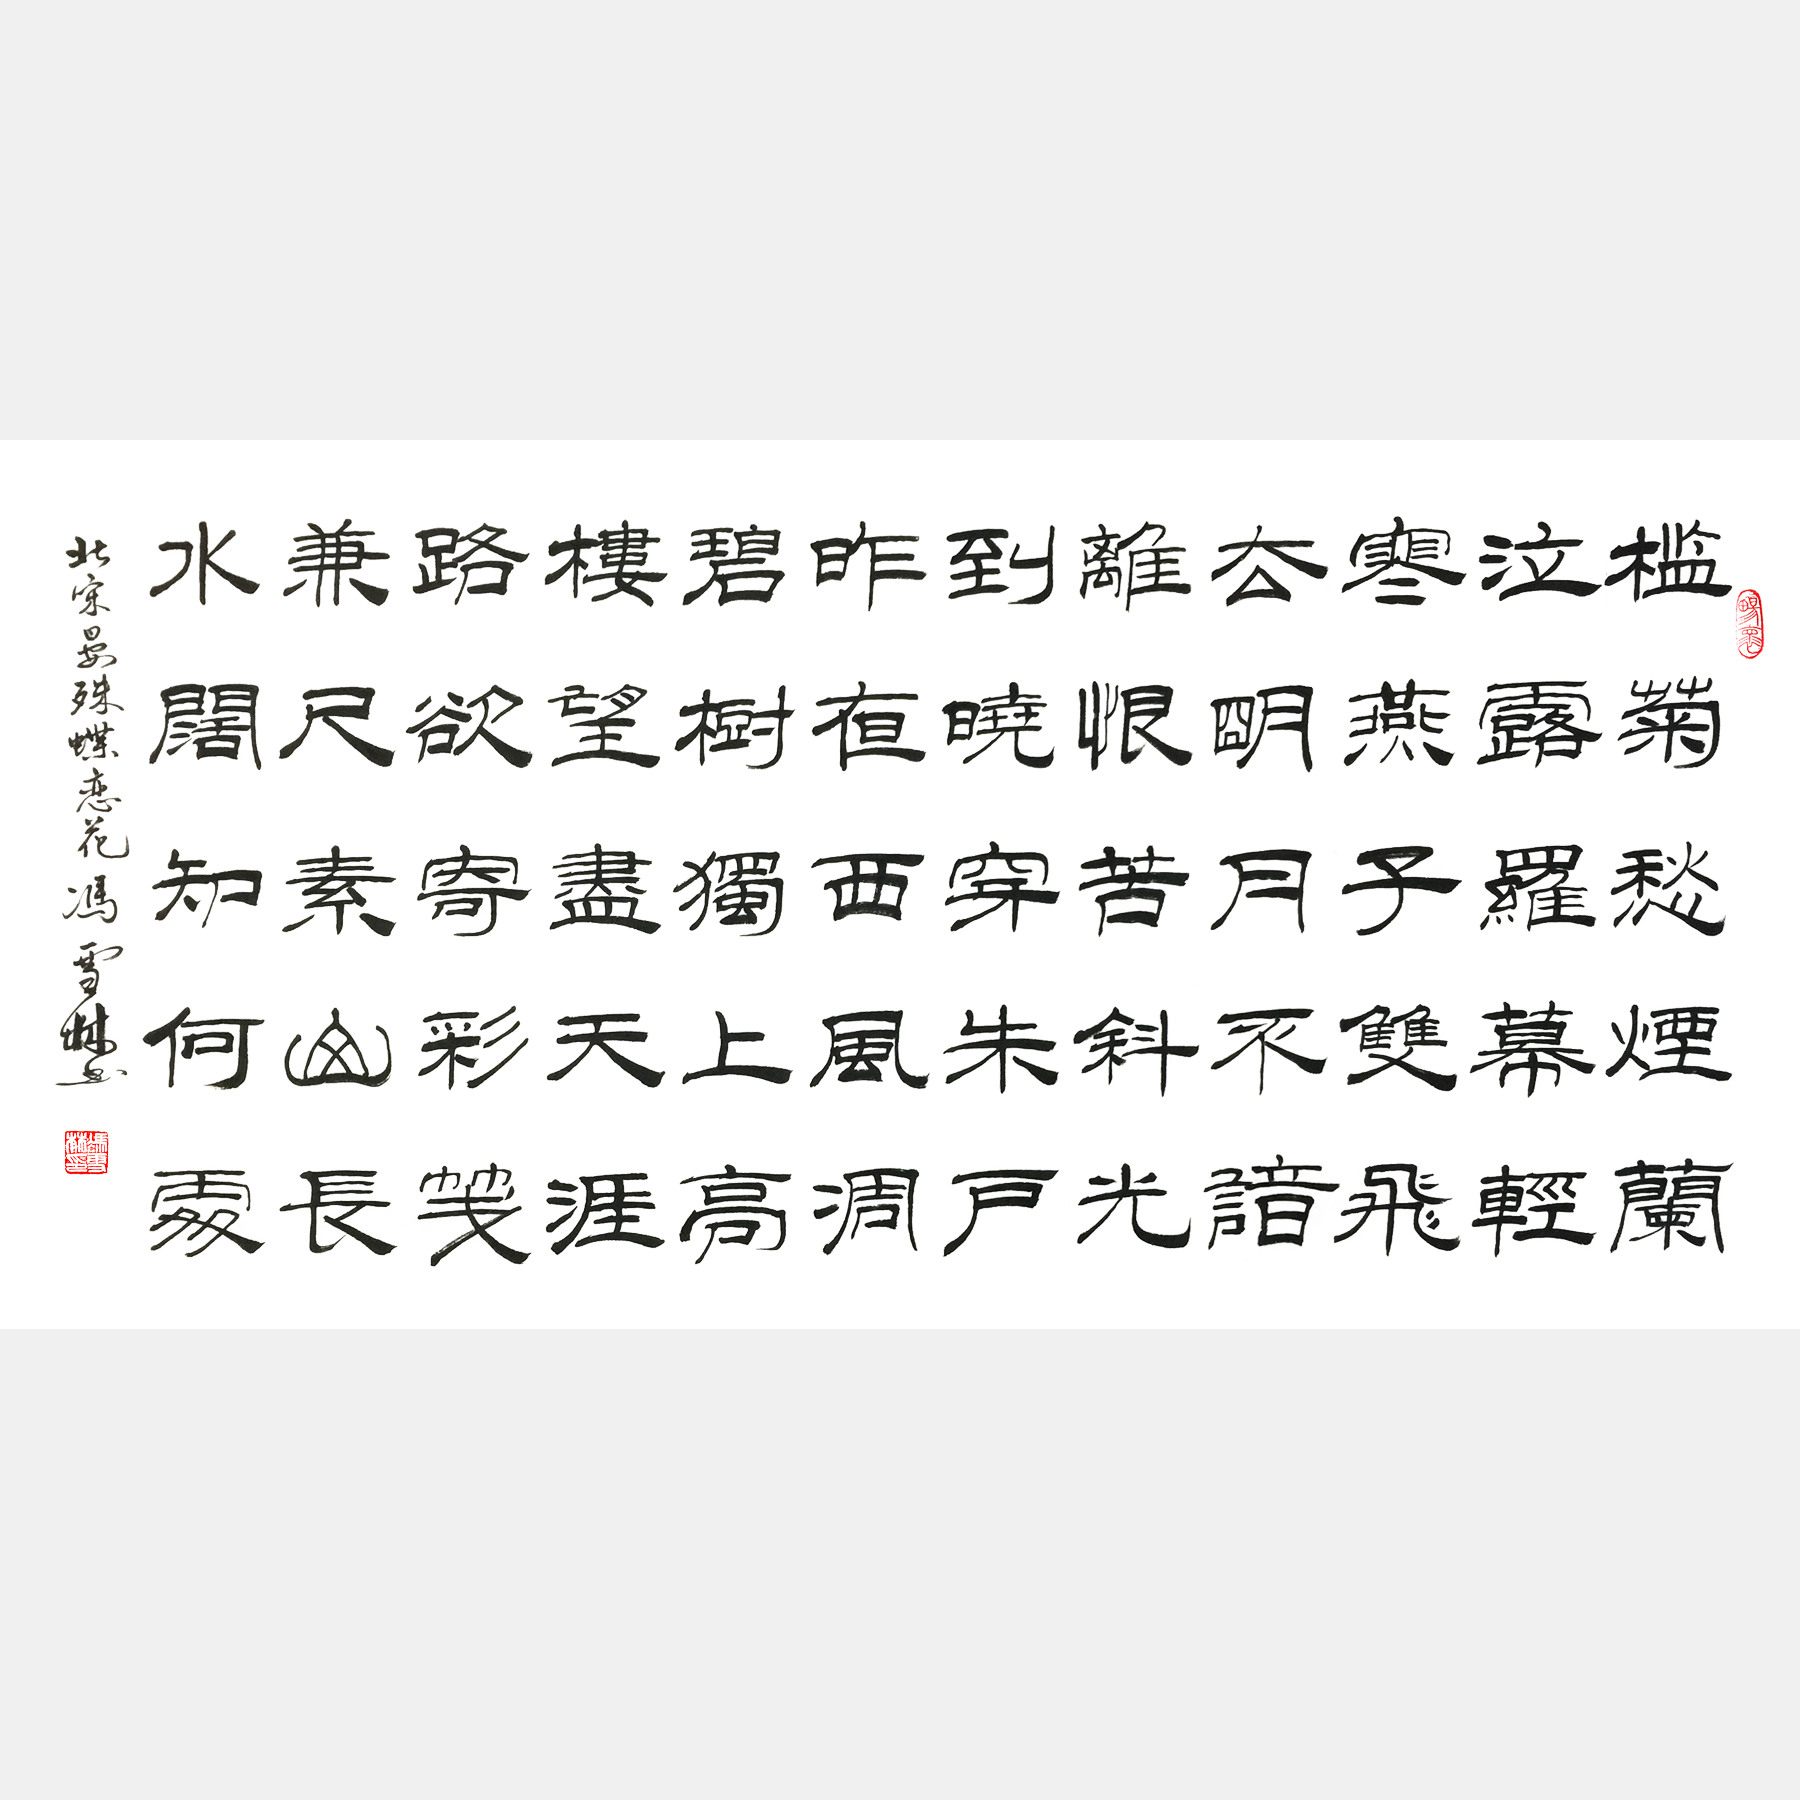 槛菊愁煙蘭
泣露羅幕輕
寒燕子雙飛
去明月不諳
離恨苦斜光
到曉穿朱戶
昨夜西風凋
碧樹獨上高
樓望盡天涯
路欲寄彩箋
兼尺素山長
水闊知何處
北宋晏殊蝶恋花 馮雪林书
暢懷